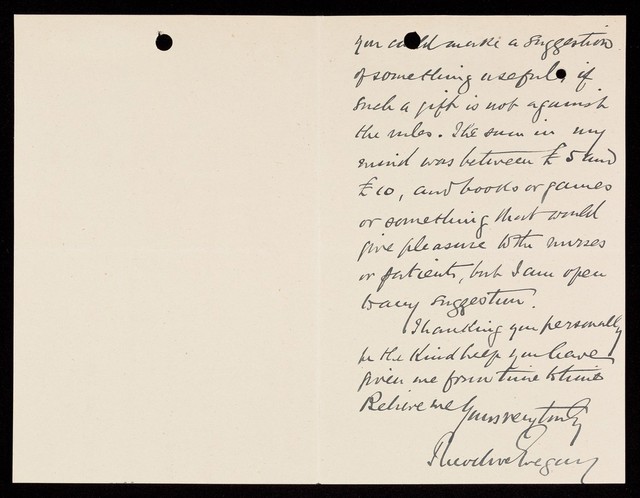 you could make a suggestion
of something useful, if
such a gift is not against
the rules. The sum in my
mind was between £5 and
£10, and books or games
or something that would
give pleasure to the nurses
or patients, but I am open
to any suggestion.
Thanking you personally
for the kind help you have
given me from time to time
Believe me Yours very truly
Theodore Gregory